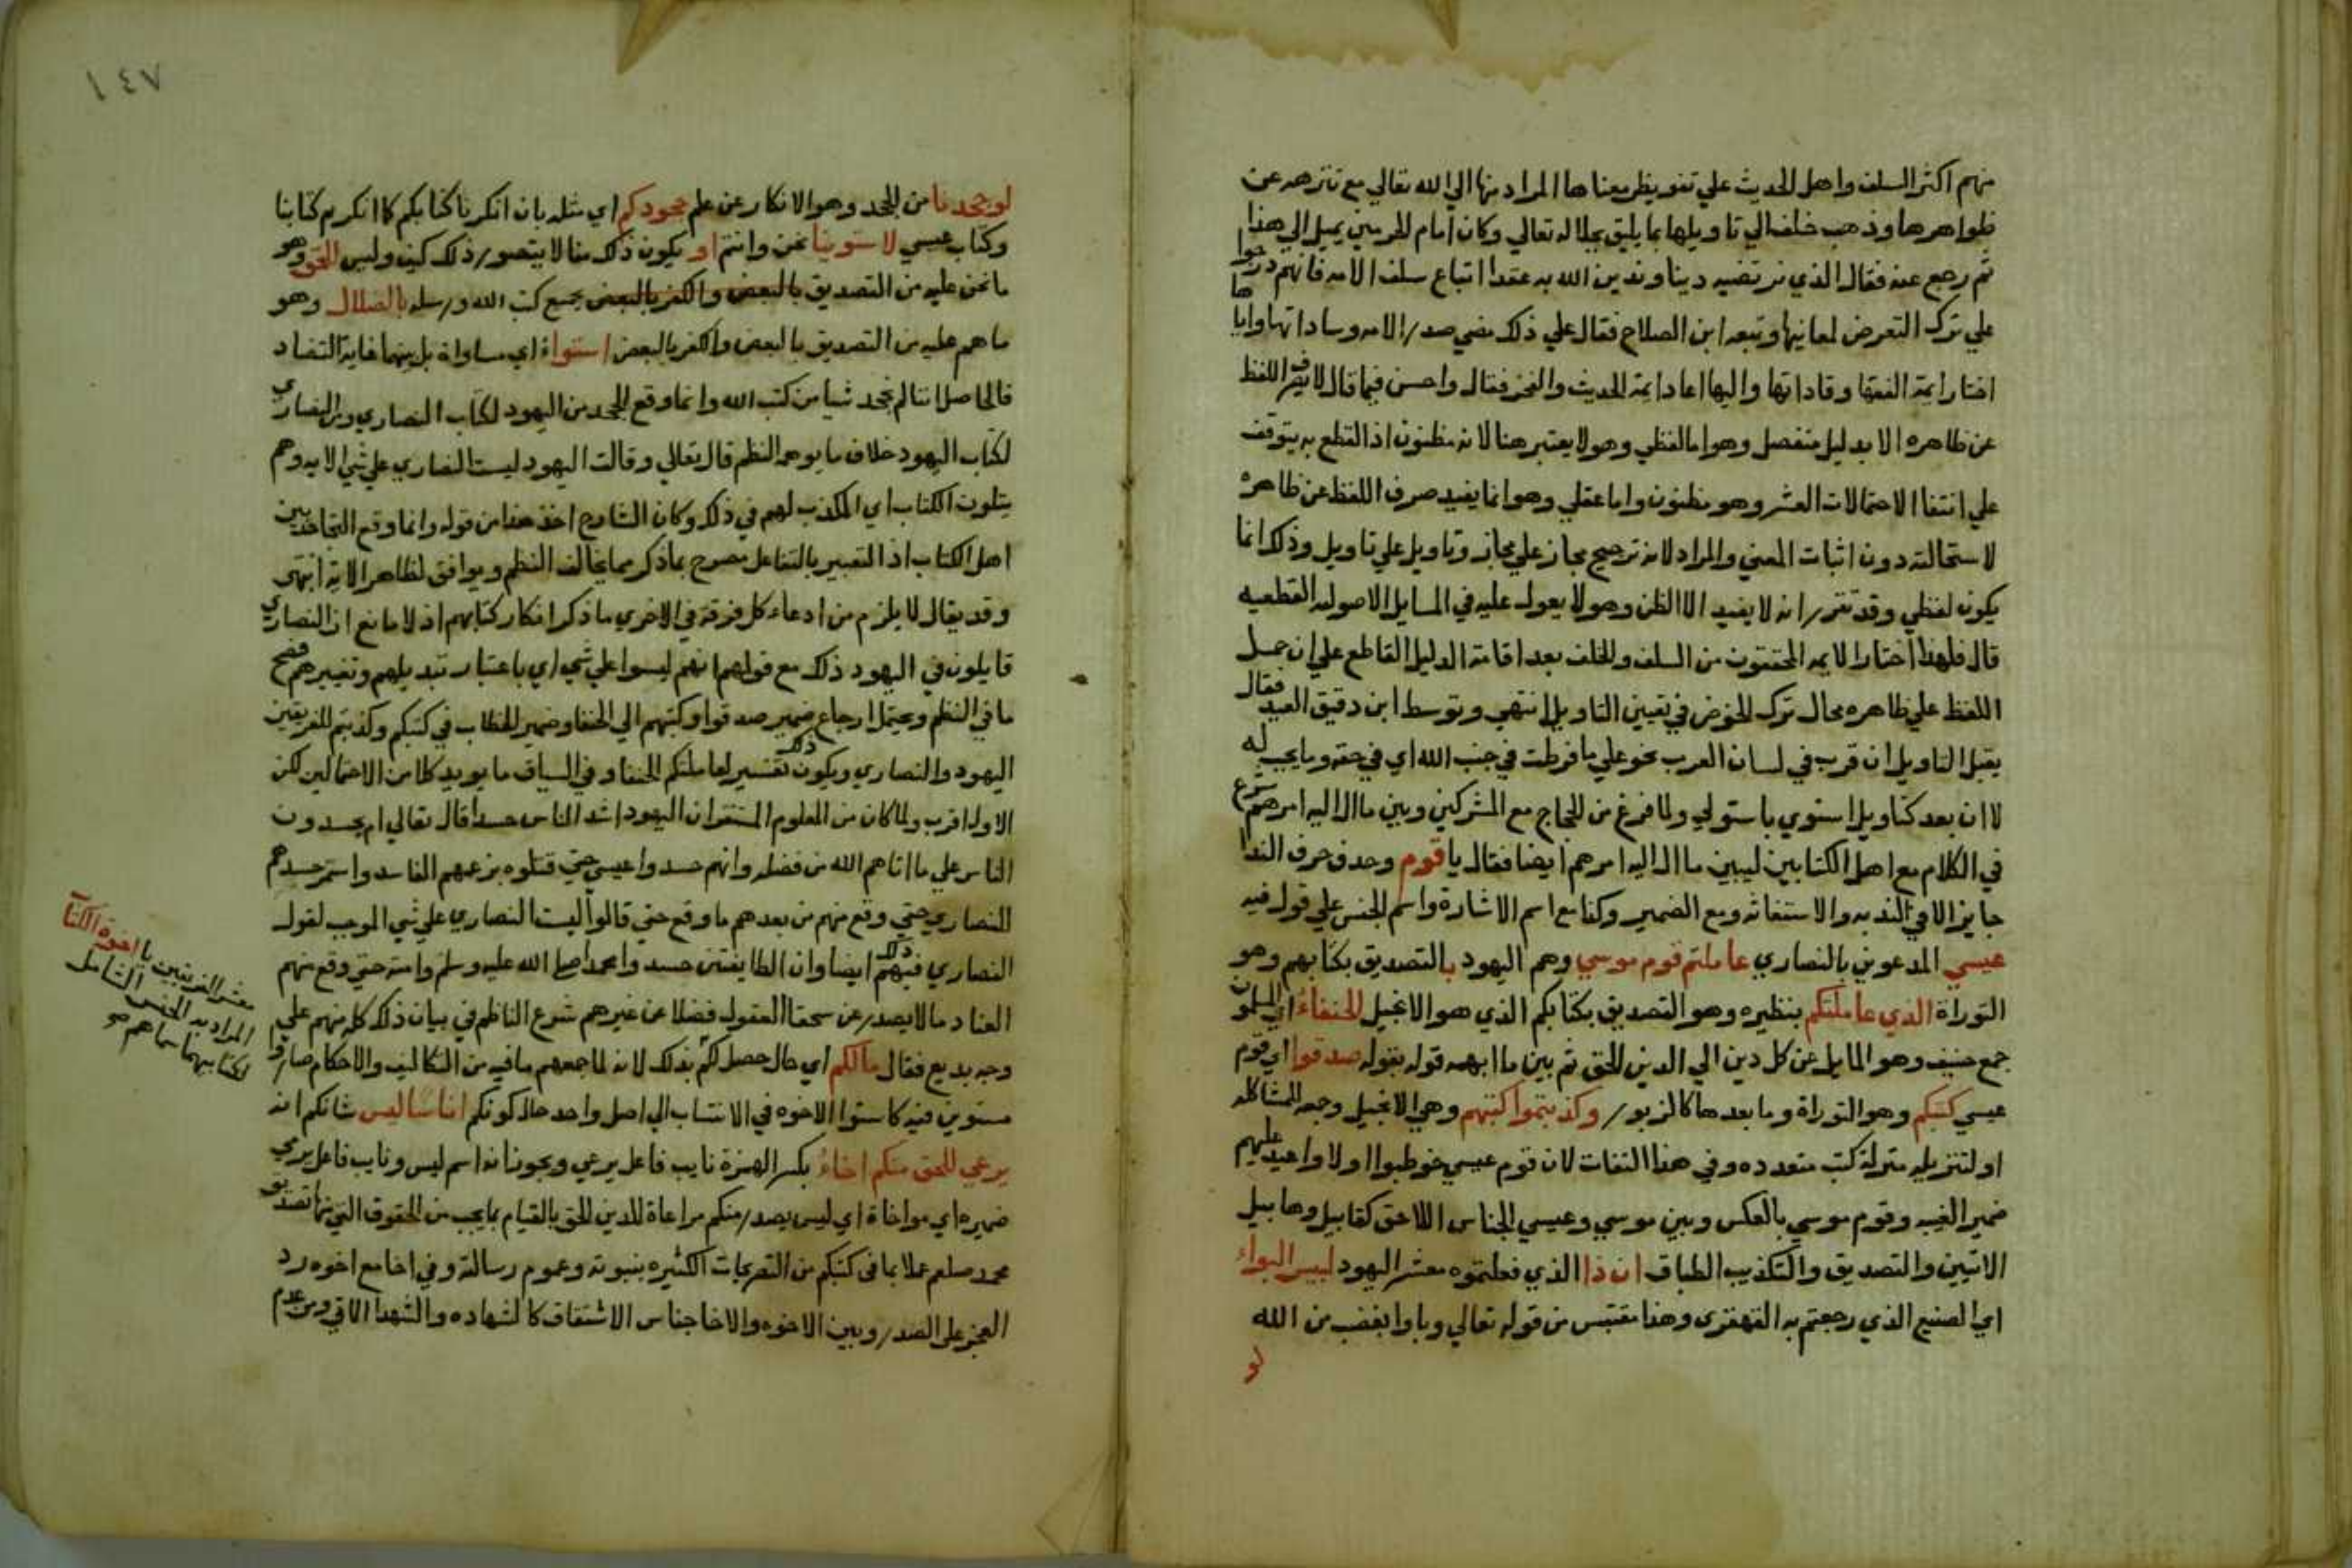 منهم اكثر السلف واهل الحديث علي تفويض معناها المراد منها الي الله تعالي مع تنزهه عن
ظواهرها وذهب خلف الي تاويلها بما يليق بجلاله تعالي وكان امام الحرمين يميل الي هذا
ثم رجع عنه فقال الذي نرتضيه دينا وندين الله به عقدا اتباع سلف الامه فانهم درجوا
علي ترك التعرض لمعانيها وتبعه ابن الصلاح فقال علي ذلك مضي صدر الامه وساداتها واياها
اختار ايمة الفقها وقاداتها واليها دعا ايمة الحديث والفخر فقال واحسن فيما قال لا يصرف اللفظ
عن ظاهره الا بدليل منفصل وهو اما لفظي وهو لا يعتبر هنا لانه مظنون اذ القطع به يتوقف
علي انتفا الاحتمالات العشر وهو مظنون واما عقلي وهو انما يفيد صرف اللفظ عن ظاهره
لاستحالته دون اثبات المعني والمراد لانه ترجيح مجاز علي مجاز وتاويل علي تاويل وذلك انما
يكون لفظي وقد تقرر انه لا يفيد الا الظن وهو لا يعول عليه في المسايل الاصوليه القطعيه
قال فلهذا اختار الايمه المحققون من السلف والخلف بعد اقامة الدليل القاطع علي ان حمل
اللفظ علي ظاهره محال ترك الخوض في تعيين التاويل انتهي وتوسط ابن دقيق العيد فقال
يقبل التاويل ان قرب في لسان العرب نحو علي ما فرطت في جنب الله اي في حقه وما يجب له
لا ان بعد كتاويل استوي باستولي ولما فرغ من الحجاج مع المشركين وبين ما ال اليه امرهم شرع
في الكلام مع اهل الكتابين ليبين ما ال اليه امرهم ايضا فقال يا قوم وحذف حرف الندا
جايز الا في الندبه والاستغاثه ومع الضمير وكذا مع اسم الاشارة واسم الجنس علي قول فيه
عيسي المدعوين بالنصاري عاملتم قوم موسي وهم اليهود بالتصديق بكتابهم وهو
التوراة الذي عاملتكم بنظيره وهو التصديق بكتابكم الذي هو الانجيل الحنفاء اي المسلمون
جمع حنيف وهو المايل عن كل دين الي الدين الحق ثم بين ما ابهمه قوله بقوله صدقوا اي قوم
عيسي كتبكم وهو التوراة وما بعدها كالزبور وكذبتموا كتبهم وهي الانجيل وجمعه للمشاكله
او لتنزيله منزلة كتب متعدده وفي هذا التفات لان قوم عيسي خوطبوا اولا واعيد عليهم
ضمير الغيبه وقوم موسي بالعكس وبين موسي وعيسي الجناس اللاحق كقابيل وهابيل
الاتيين والتصديق والتكذيب الطباق ان ذا الذي فعلتموه معشر اليهود لبيس البواء
اي الصنيع الذي رجعتم به القهقري وهذا مقتبس من قوله تعالي وباوا بغضب من الله
لو
١٤٧
لو جحدنا من الجحد وهو الانكار عن علم جحودكم اي مثله بان انكرنا كتابكم كما انكرتم كتابنا
وكتاب عيسي لاستوينا نحن وانتم او يكون ذلك منا لا يتصور ذلك كيف وليس للحق وهو
ما نحن عليه من التصديق بالبعض والكفر بالبعض بجميع كتب الله ورسله بالضلال وهو
ما هم عليه من التصديق بالبعض والكفر بالبعض استواء اي مساواة بل بينهما غاية التضاد
فالحاصل اننا لم نجحد شيا من كتب الله وانما وقع الجحد من اليهود لكتاب النصاري ومن النصاري
لكتاب اليهود خلاف ما يوهمه النظم قال تعالي وقالت اليهود ليست النصاري علي شي الايه وهم
يتلون الكتاب اي المكذب لهم في ذلك وكان الشارح اخذ هذا من قوله وانما وقع التجاحد بين
اهل الكتاب اذ التعبير بالتفاعل مصرح بما ذكر مما يخالف النظم ويوافق لظاهر الاية انتهي
وقد يقال لا يلزم من ادعاء كل فرقة في الاخري ما ذكر انكار كتابهم اذ لا مانع ان النصاري
قايلون في اليهود ذلك مع قولهم انهم ليسوا علي شي اي باعتبار تبديلهم وتغييرهم فصح
ما في النظم ويحتمل ارجاع ضمير صدقوا وكتبهم الي الحنفا وضمير الخطاب في كتبكم وكذبتم للفريقين
اليهود والنصاري ويكون ذلك تفسير لعاملتكم الحنفا وفي السياق ما يويد كلا من الاحتمالين لكن
الاول اقرب ولما كان من المعلوم المستقر ان اليهود اشد الناس حسدا قال تعالي ام يحسدون
الناس علي ما اتاهم الله من فضله وانهم حسدوا عيسي حتي قتلوه بزعمهم الفاسد واستمر حسدهم
للنصاري حتي وقع منهم من بعدهم ما وقع حتي قالوا ليست النصاري علي شي الموجب لقول
النصاري فيهم ذلك ايضا وان الطايفتين حسدوا محمدا صلى الله عليه وسلم وامته حتي وقع منهم
العناد ما لا يصدر عن سخفا العقول فضلا عن غيرهم شرع الناظم في بيان ذلك كله منهم علي
وجه بديع فقال مالكم اي حال حصل لكم بذلك لانه لما جمعهم ما فيه من التكاليف والاحكام صاروا
مستوين فيه كاستوا الاخوه في الانتساب الي اصل واحد حال كونكم اناسا ليس شانكم انه
يرعي للحق منكم اخاء بكسر الهمزة نايب فاعل يرعي ويجوز انه اسم ليس ونايب فاعل يرعي
ضميره اي مواخاة اي ليس يصدر منكم مراعاة للدين الحق بالقيام بما يجب من الحقوق التي منها تصديق
محمد صلعم عملا بما في كتبكم من التصريحات الكثيره بنبوته وعموم رسالته وفي اخا مع اخوه رد
العجز علي الصدر وبين الاخوه والاخا جناس الاشتقاق كالشهاده والشهدا الاتي ومن عدم
معشر الفريقين يا اخوة الكتاب
المراد به الجنس الشامل
لكتابيهما